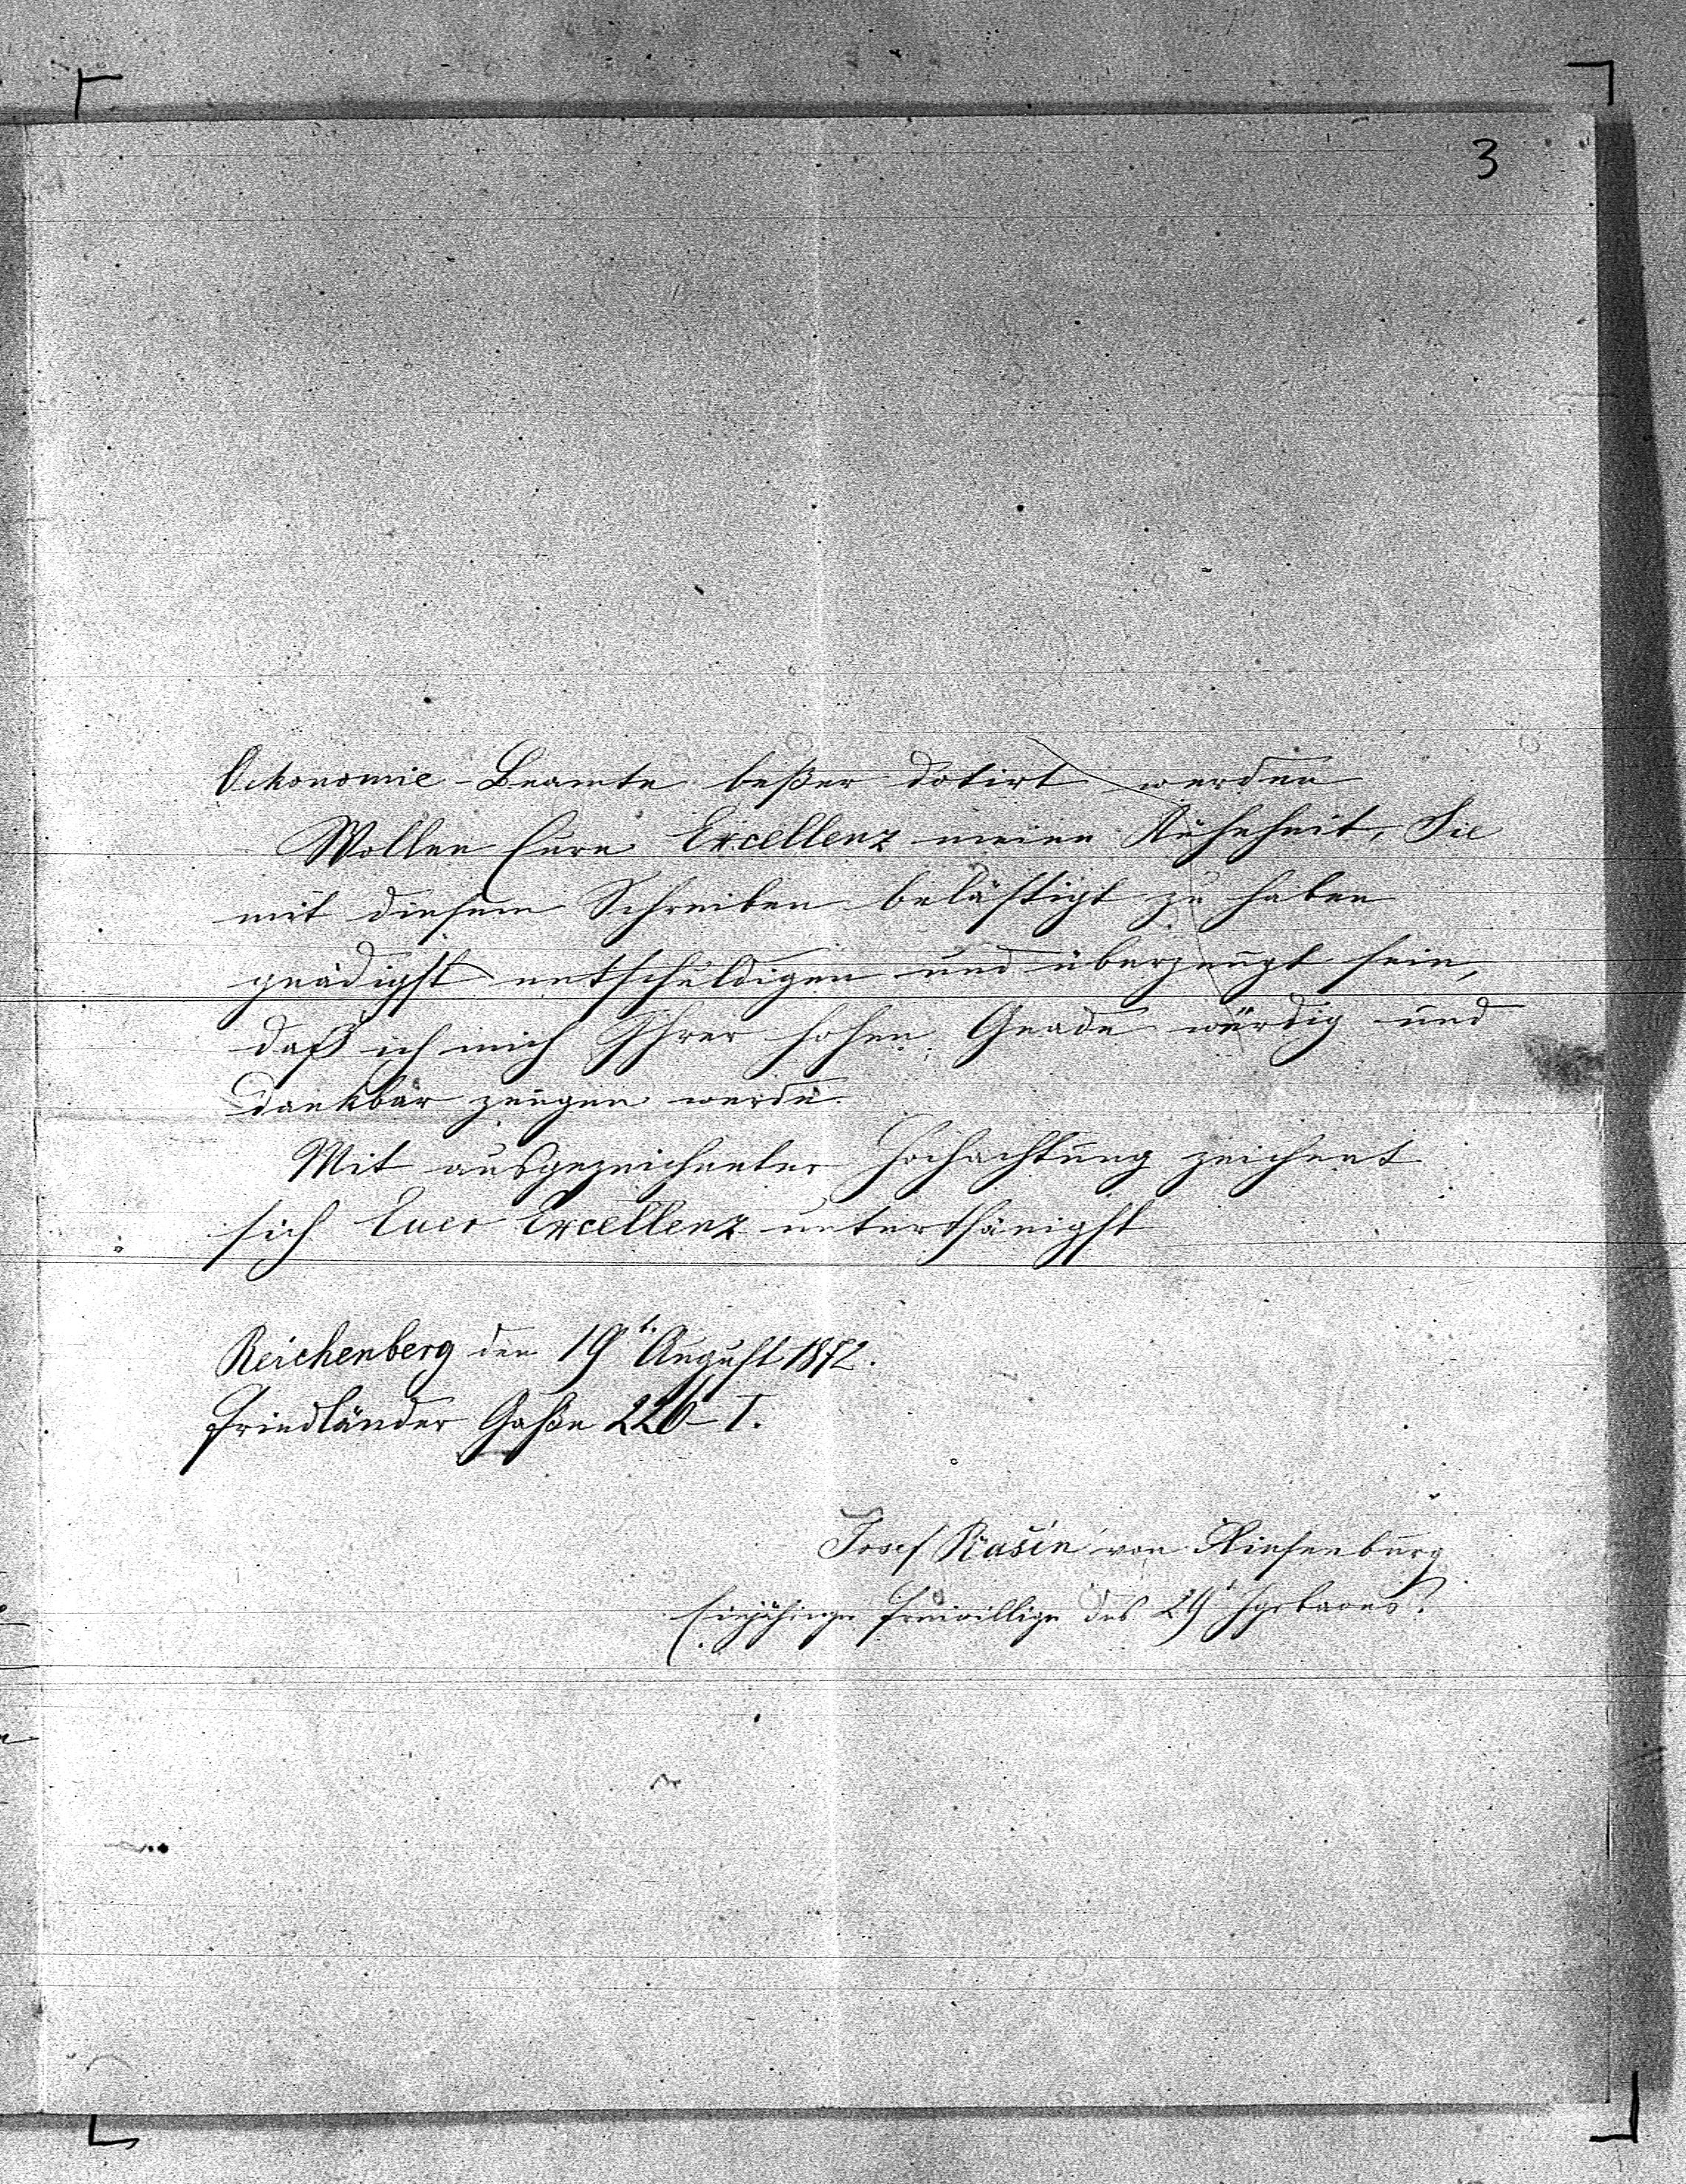 3
Oekonomie-Beamte beßer dotirt werden
Wollen Eure Excellenz meine Kühnheit, Sie
mit diesem Schreiben belästigt zu haben
gnädigst entschuldigen und überzeugt sein,
daß ich mich Ihrer hohen Gnade würdig und
dankbar zeugen werde.
Mit ausgezeichneter Hochachtung zeichnet
sich Euer Excellenz unterthänigst
Reichenberg den 19t. August 1872.
Friedländer Gaße 226-I.
Josef Rašín von Riesenburg
Einjähriger Freiwillige des 29t Jgrbaons.